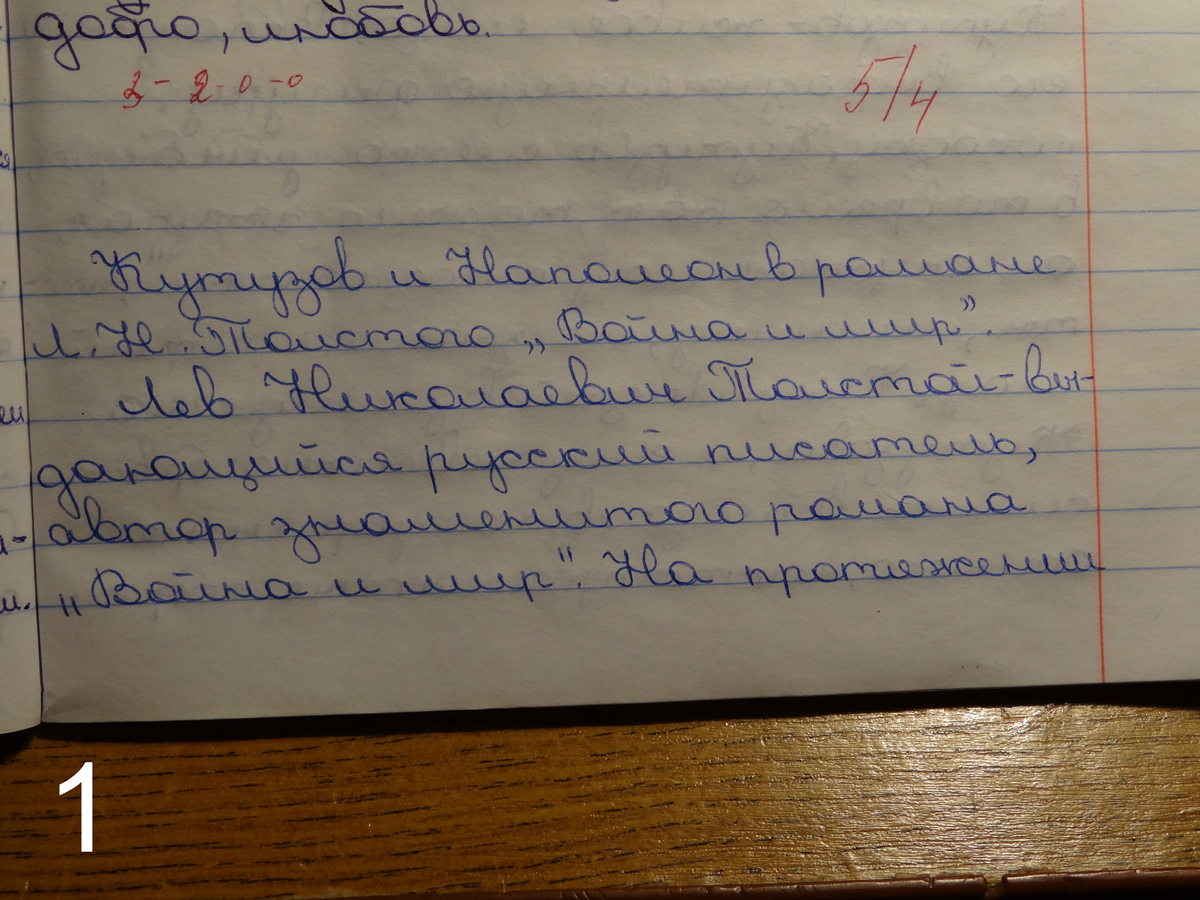 добро, любовь.
3 - 2 - 0 - 0
5/4
Кутузов и Наполеон в романе
Л. Н. Толстого „Война и мир”.
Лев Николаевич Толстой - вы-
дающийся русский писатель,
автор знаменитого романа
„Война и мир". На протяжении
1